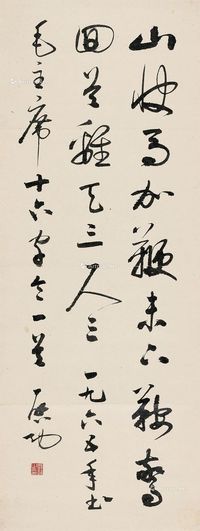 山快馬加鞭未下鞍驚
回首離天三尺三 一九六五年書
毛主席十六字令一首 启功